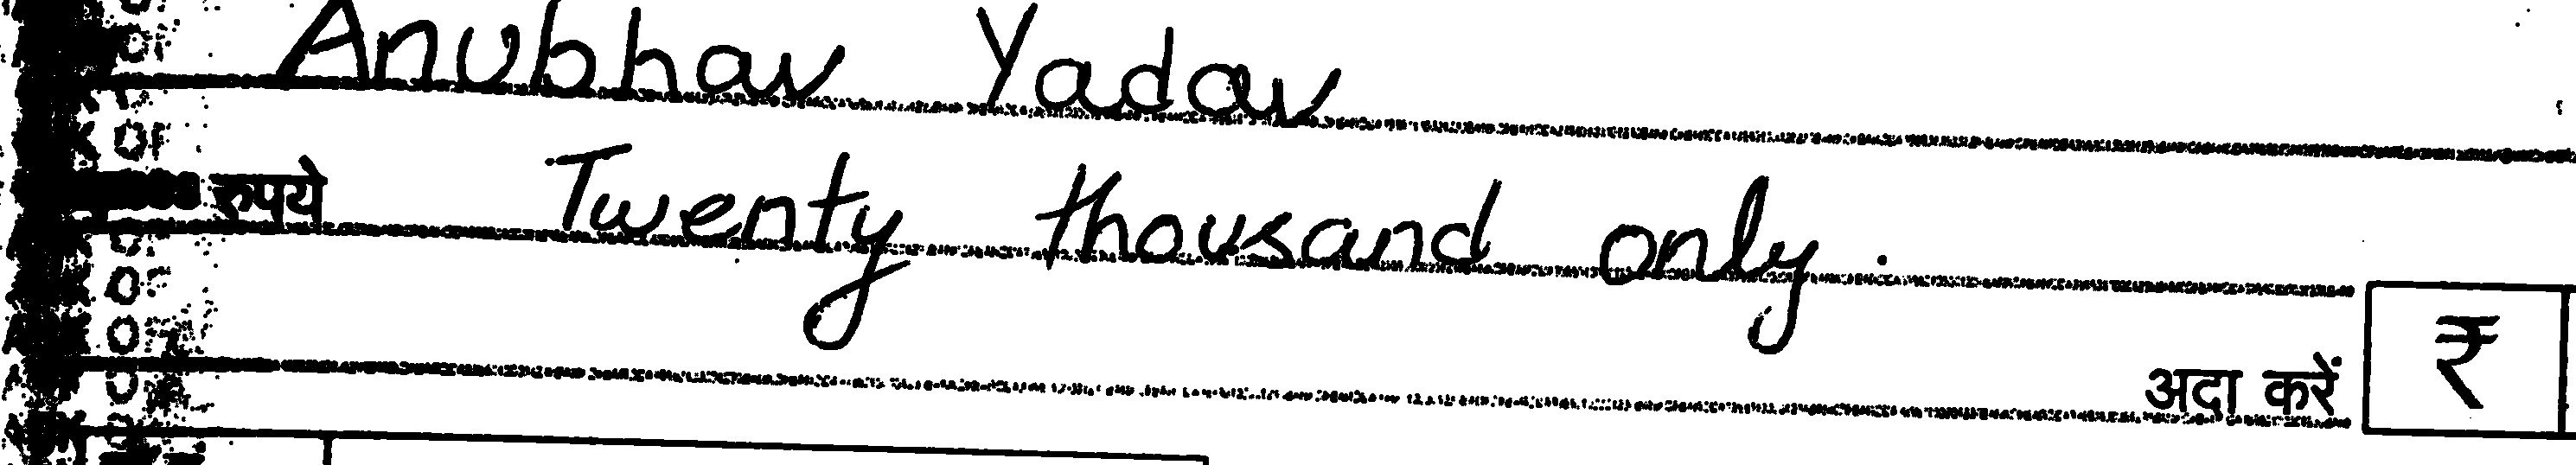 Anubhav Yadav
रुपये Twenty thousand only.
अदा करें ₹